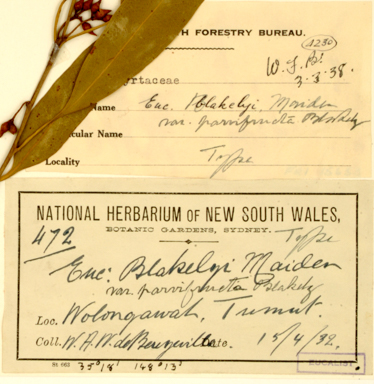 H FORESTRY BUREAU.
1230
W.F.B.
3.3.38.
yrtaceae
Name Euc. Blakelyi Maiden
var. parvifructa Blakely
cular Name
Locality Type
NATIONAL HERBARIUM OF NEW SOUTH WALES,
BOTANIC GARDENS, SYDNEY.
472 Type
Euc: Blakelyi Maiden
var. parvifructa Blakely
Loc. Wolongawah, Tumut.
Coll. W.A.W. de Beuzeville Date. 15/4/32.
St 663 35°18' 148°13'
EUCALIST